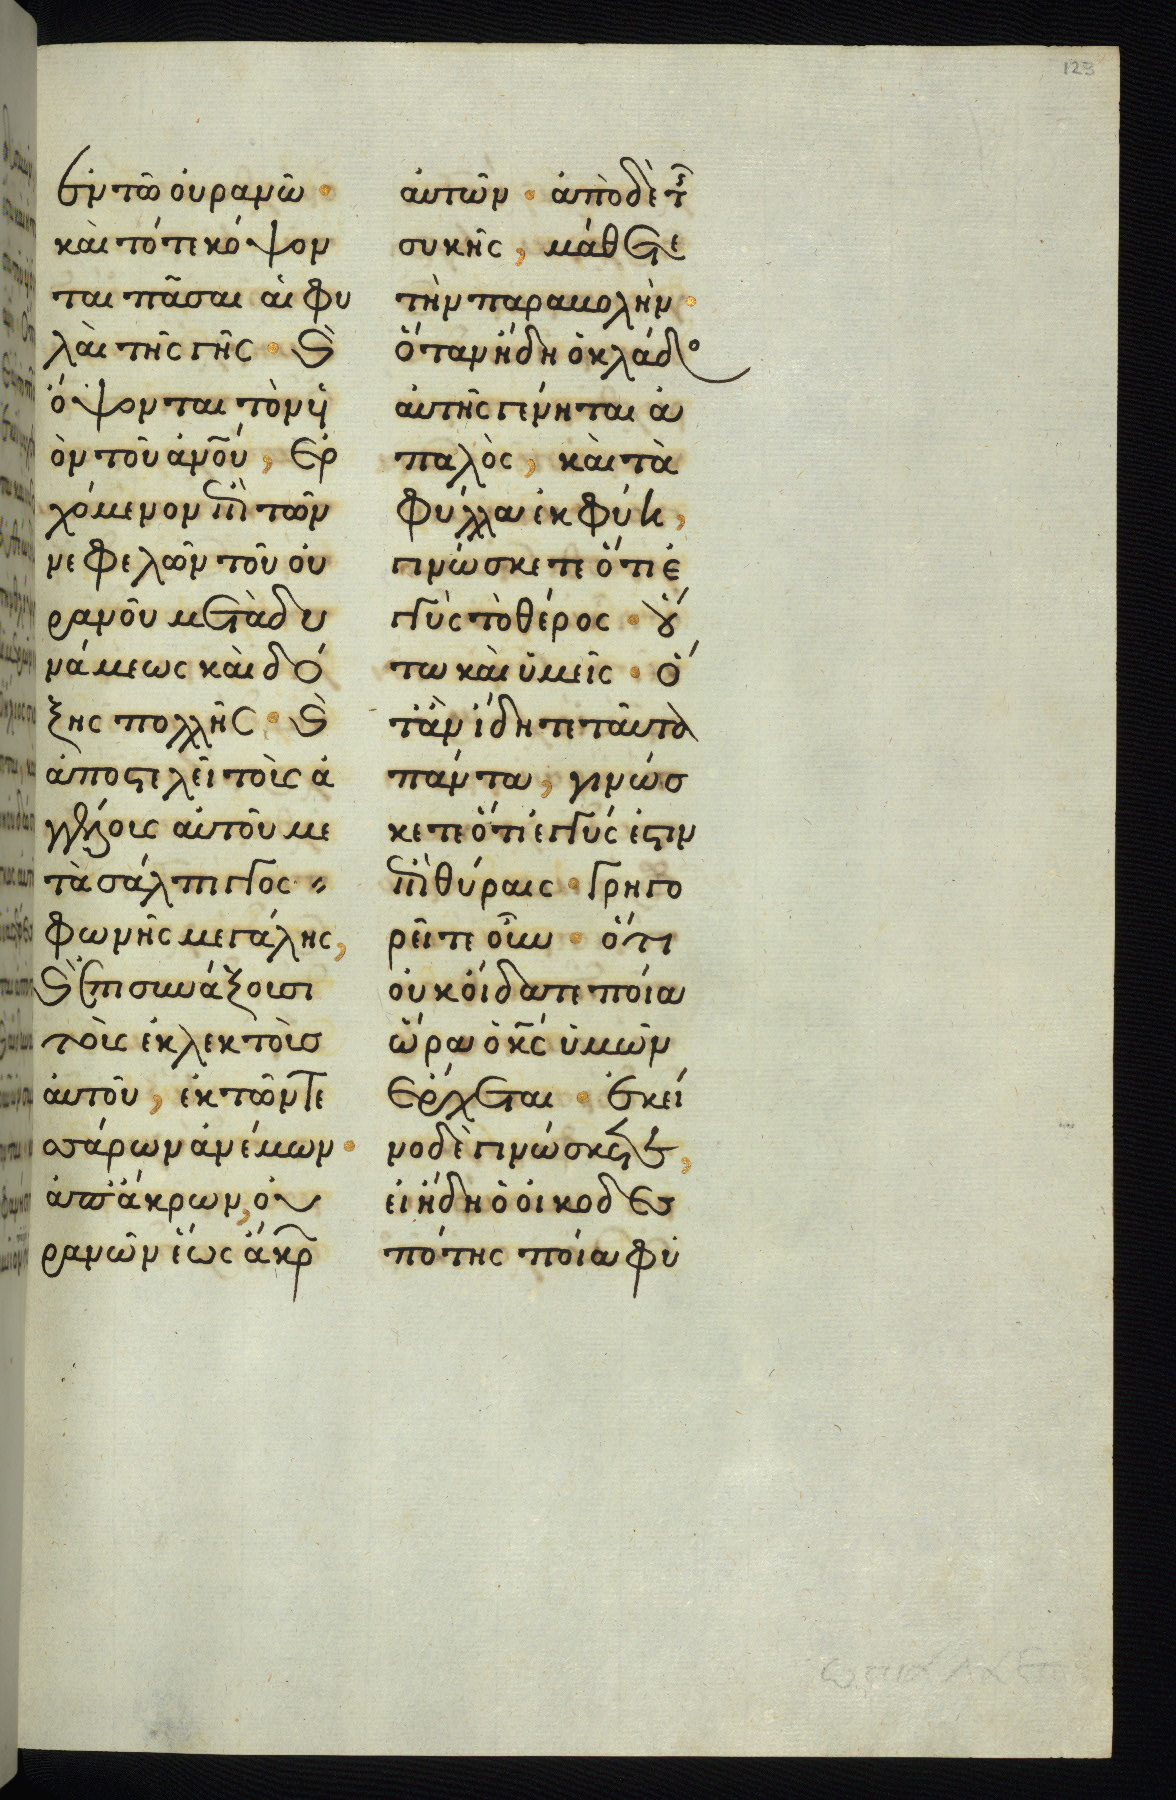 123
ἐν τῶ οὐρανῶ ·
καὶ τότε κόψον
ται πᾶσαι αἱ φυ
λαὶ τῆς γῆς · Ϗ
ὄψονται τὸν ὑϊ
ὸν τοῦ ἀν̅ο̅υ̅, ἐρ
χόμενον ἐπὶ τῶν
νεφελῶν τοῦ οὐ
ρανοῦ μετὰ δυ
νάμεως καὶ δό
ξης πολλῆς · Ϗ
ἀποστελεῖ τοὺς ἀ
γγέλους αὐτοῦ με
τὰ σάλπιγγος
φωνῆς μεγάλης,
Ϗ ἐπισυνάξουσι
τοὺς ἐκλεκτοὺσ
αὐτοῦ, ἐκ τῶν τε
σσάρων ἀνέμων ·
ἀπ' ἄκρων, οὐ
ρανῶν ἕως ἄκρ
αὐτῶν · ἀπὸ δὲ τ
συκῆς, μάθετε
τὴν παραβολὴν ·
ὅταν ἤδη ὁ κλάδο
αὐτῆς γένηται ἁ
παλὸς, καὶ τὰ
φύλλα ἐκφύη,
γινώσκετε ὅτι ἐ
γγὺς τὸ θέρος · οὕ
τω καὶ ὑμεῖς · ὅ
τὰν ἴδητε ταῦτα
πάντα, γινώσ
κετε ὅτι ἐγγύς ἐστιν
ἐπὶ θύραις · Γρηγο
ρεῖτε οὖν · ὅτι
οὐκ οἴδατε ποία
ὥρα ὁ κ̅ς̅ ὑμῶν
ἔρχεται · Ἐκεῖ
νο δὲ γινώσκετε,
εἰ ἤδη ὁ οἰκοδεσ
πότης ποία φυ